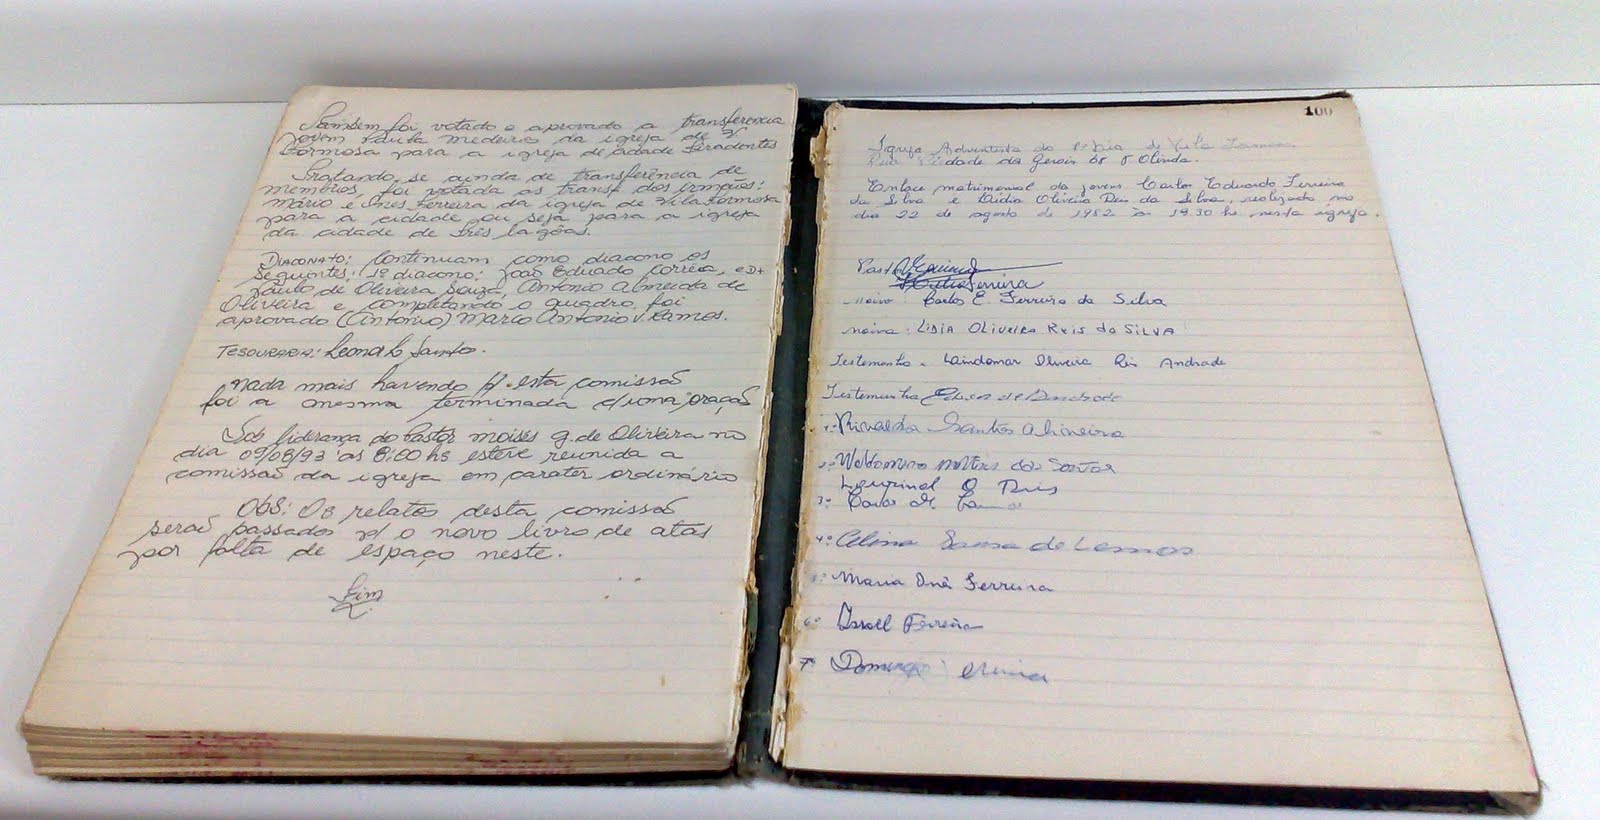 Também foi votado e aprovado a transferência
jovem Paula Medeiros da igreja de V.
Formosa para a igreja de cidade Tiradentes
Tratando se ainda de transferência de
membros, foi votada as transf dos irmãos:
Mário e Ines Ferreira da igreja de Vila Formosa
para a cidade ou seja para a igreja
da cidade de Três lagôas.
DIACONATO: Continuam como diacono os
seguintes: 1º diacono: João Eduado Corrêa,
Paulo de Oliveira Souza, Antonio Almeida de
Oliveira e completando o quadro foi
aprovado (Antonio) Marco Antonio V. Ramos.
TESOURARIA:
Nada mais havendo p/ esta comissão
foi a mesma terminada c/ uma oração
Sob liderança do Pastor Moises G. de Oliveira no
dia 09/08/93 as 8:00 hs esteve reunida a
comissão da igreja em carater ordinário
Obs: Os relatos desta comissão
serão passados p/ o novo livro de atas
por falta de espaço neste.
Fim
100
Igreja Adventista do 7º Dia de Vila Formosa
Olinda.
Enlace matrimonial da jovens Carlos Eduardo Ferreira
da Silva e Lídia Oliveira Reis da Silva, realizado no
dia 22 de agosto de 1982 às 19.30 hs nesta igreja.
Pastor
Noivo: Carlos E. Ferreira da Silva
Noiva: LIDIA OLIVEIRA REIS da SILVA
Testemunha - Oliveira Reis Andrade
Testemunha de Andrade
1º Santos Oliveira
2º dos Santos
O Reis
3º
4º Celina Sousa de Lemos
5º Maria Inês Ferreira
6º Israel Ferreira
7º